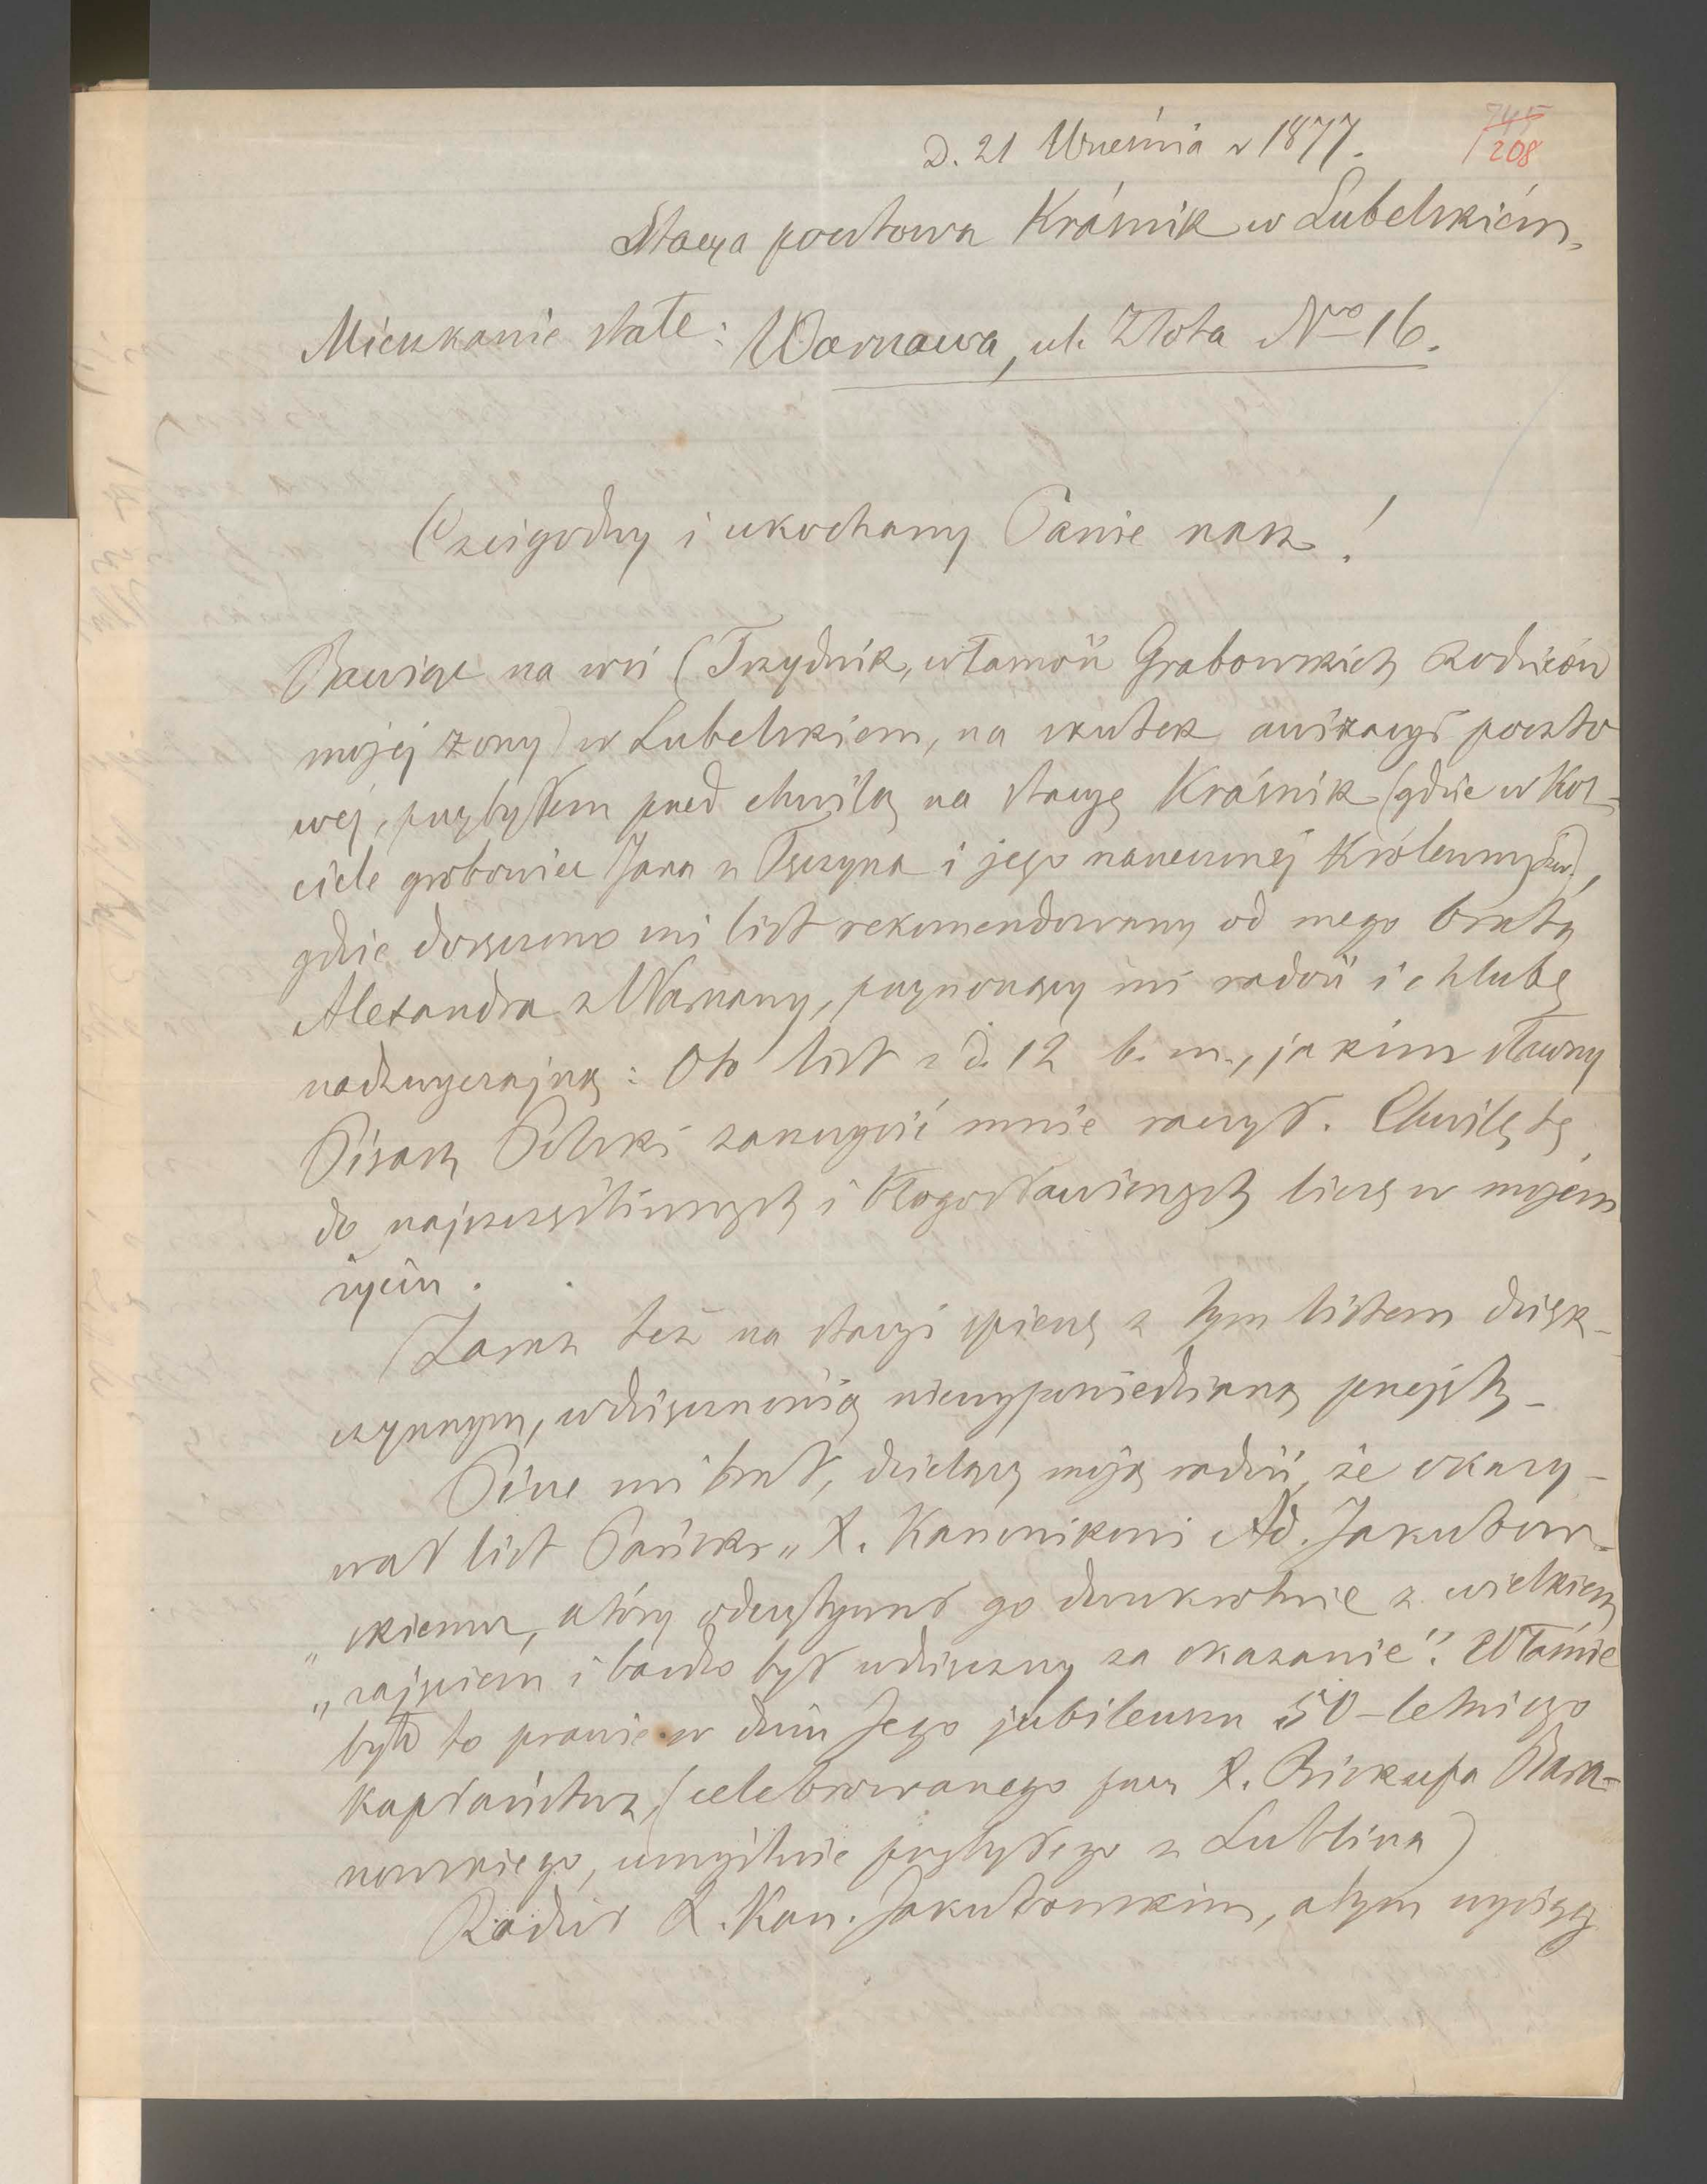 745
208
D. 21 Września r 1877.
Stacya pocztowa Kraśnik w Lubelskiém,
Mieszkanie stałe: Warszawa, ul. Złota Nro 16.
Czcigodny i ukochany Panie nasz!
Bawiąc na wsi (Trzydnik, własność Grabowskich Rodziców
mojéj żony) w Lubelskiem, na skutek awizacyi poczto
wéj, przybyłem przed chwilą na stacyę Kraśnik (gdzie w Koś-
ciele grobowiec Jana z Tęczyna i jego narzeczonéj Królewny),
gdzie doręczono mi list rekomendowany od mego brata
Alexandra z Warszawy, przynoszący mi radość i chlubę
nadzwyczajną: Oto list z d. 12 b. m., jakim sławny
Pisarz Polski zaszczycić mnie raczył. Chwilę tę
do najszczęśliwszych i błogosławionych liczę w mojém
życiu.
Zaraz też na stacyi spieszę z tym listem dzięk-
czynnym, wdzięcznością niewypowiedzianą przejęty_
Pisze mi brat, dzieląc moją radość, że okazy-
wał list Pański „X. Kanonikowi Ad. Jakubow-
„skiemu, który odczytywał go dwukrotnie z wielkiem
„zajęciem i bardzo był wdzięczny za okazanie". Właśnie
było to prawie w dniu Jego jubileuszu 50-letniego
kapłaństwa, (celebrowanego przez X. Biskupa Bara-
nowskiego, umyślnie przybyłego z Lublina)
Radził X. Kan. Jakubowskim, a tym więcéj